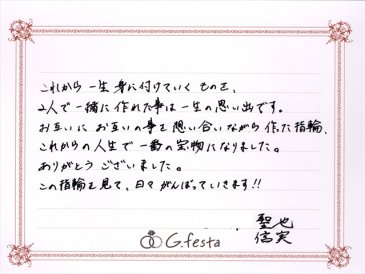 これから一生身に付けていくものを、
2人で一緒に作れた事は一生の思い出です。
お互いにお互いの事を想い合いながら作った指輪、
これからの人生で一番の宝物になりました。
ありがとうございました。
この指輪を見て、日々がんばっていきます!!
聖也
信実
G.festa